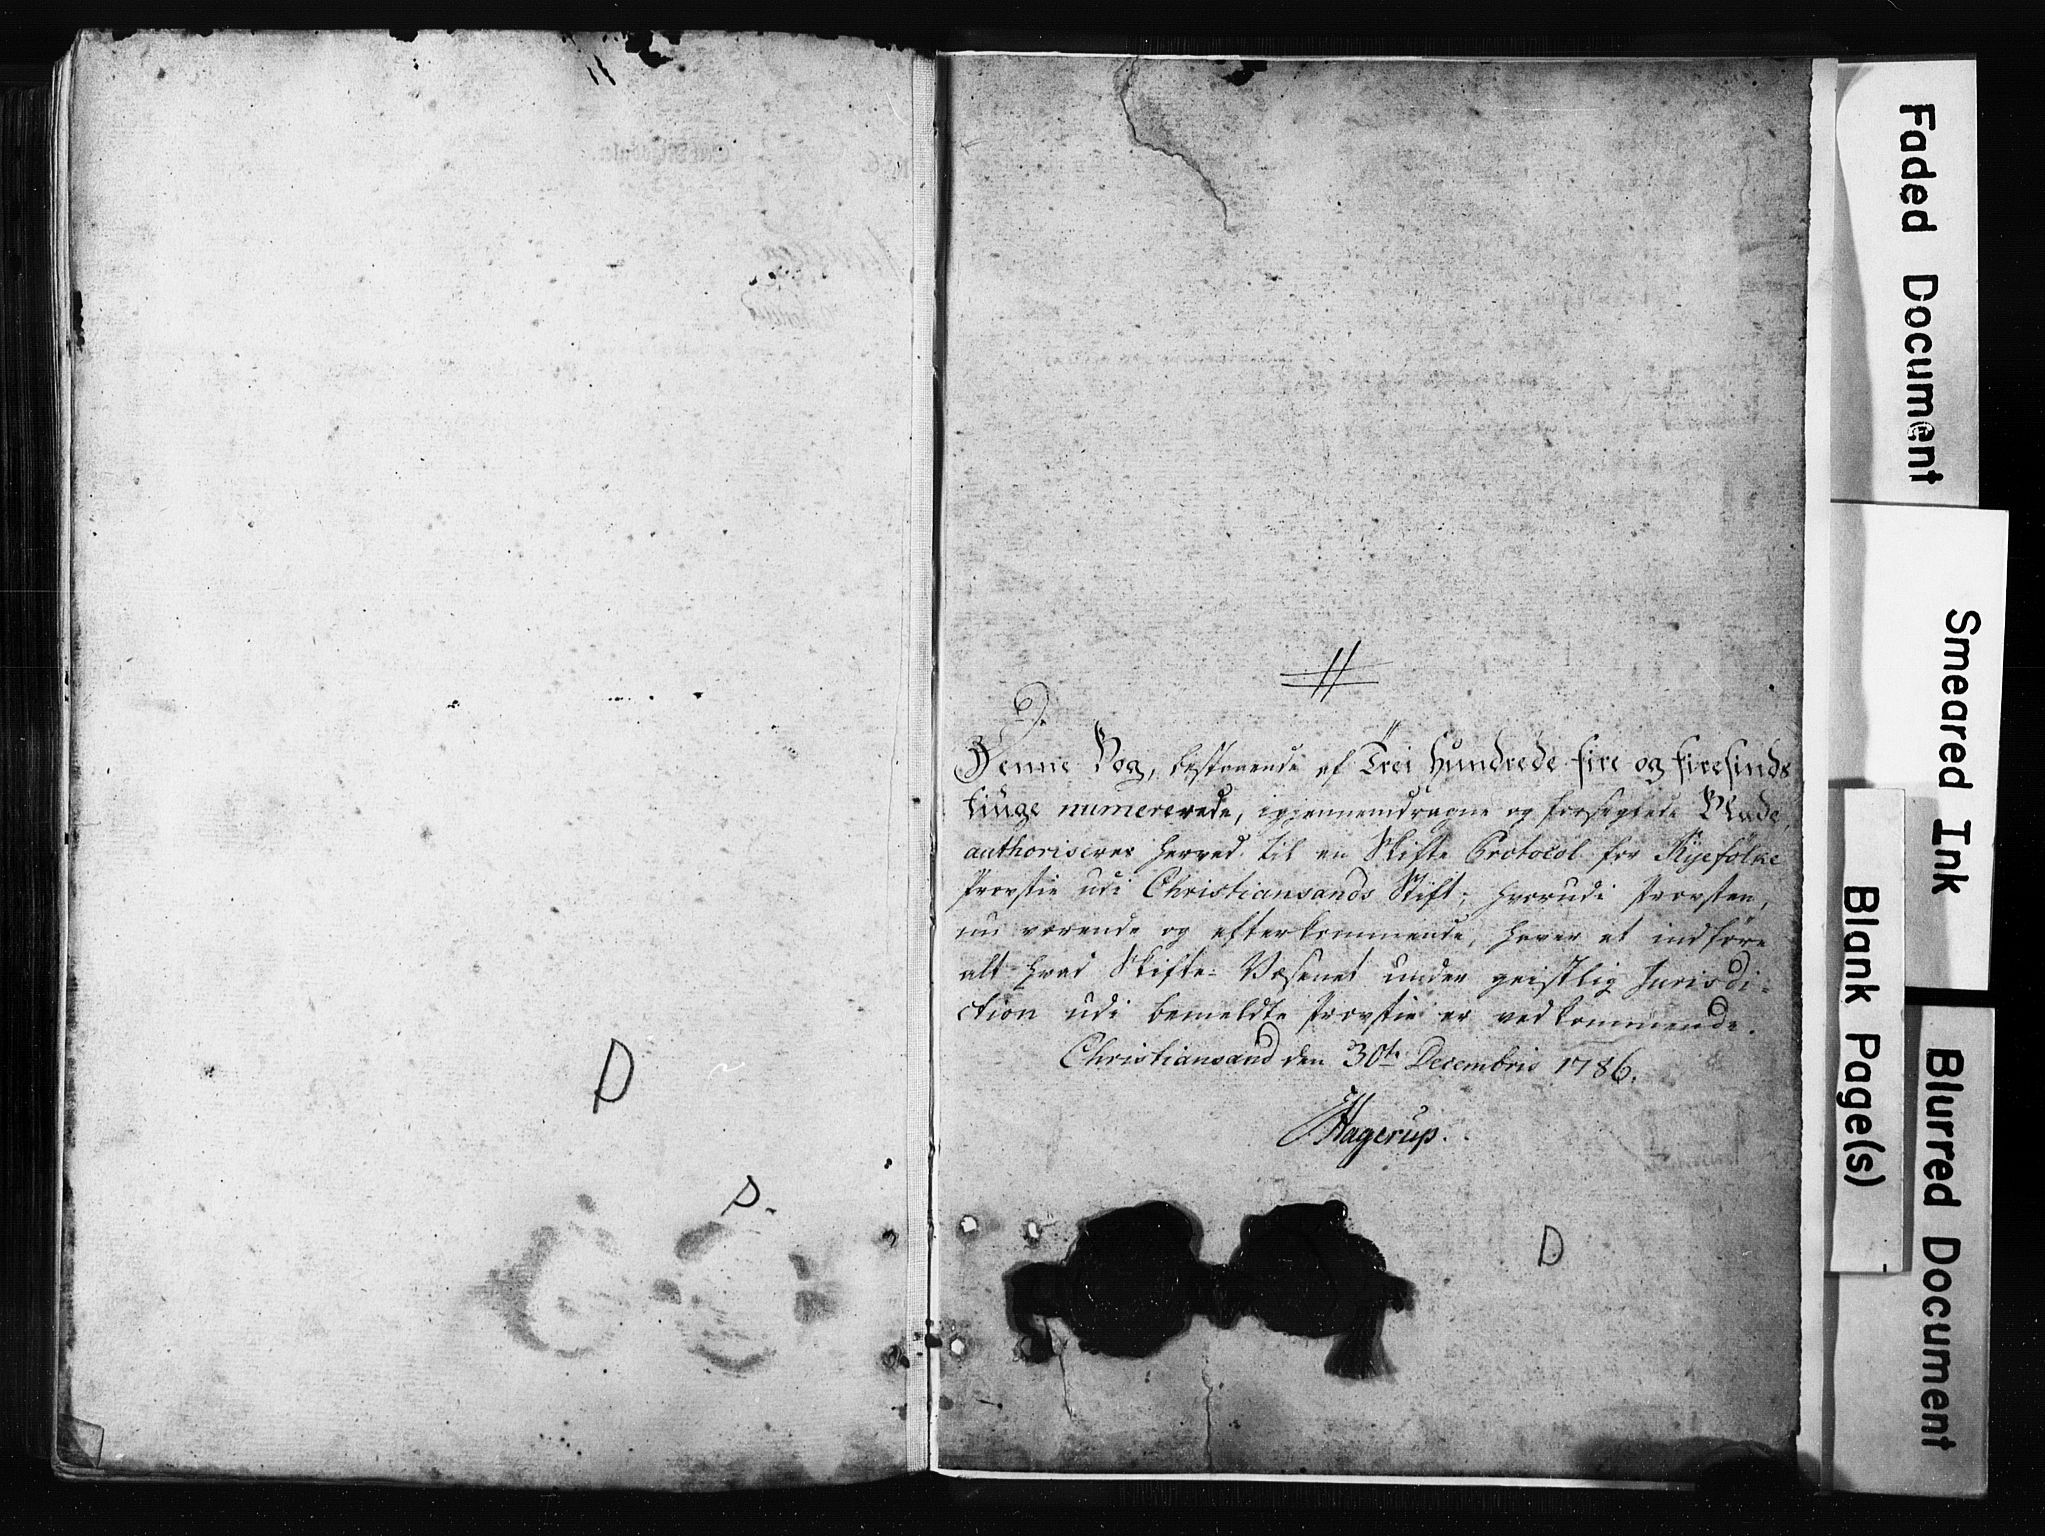 D
D.
Denne Bog, bestaaende af Trei Hundrede fire og firesinds
tiuge numererede, igjennemdragne og forseglede Blade,
authoriseres herved til en Skifte Protocol for Ryefølke
Provstie udi Christiansands Stift; hvorudi Provsten,
nu værende og efterkommende, haver at indføre
alt hvad Skifte-Væsenet under geistlig Jurisdi-
ction udi bemeldte Provstie er vedkommende.
Christiansand den 30te Decembris 1786.
Hagerup.
D
Faded Document
Smeared Ink
Blank Page(s)
Blurred Document